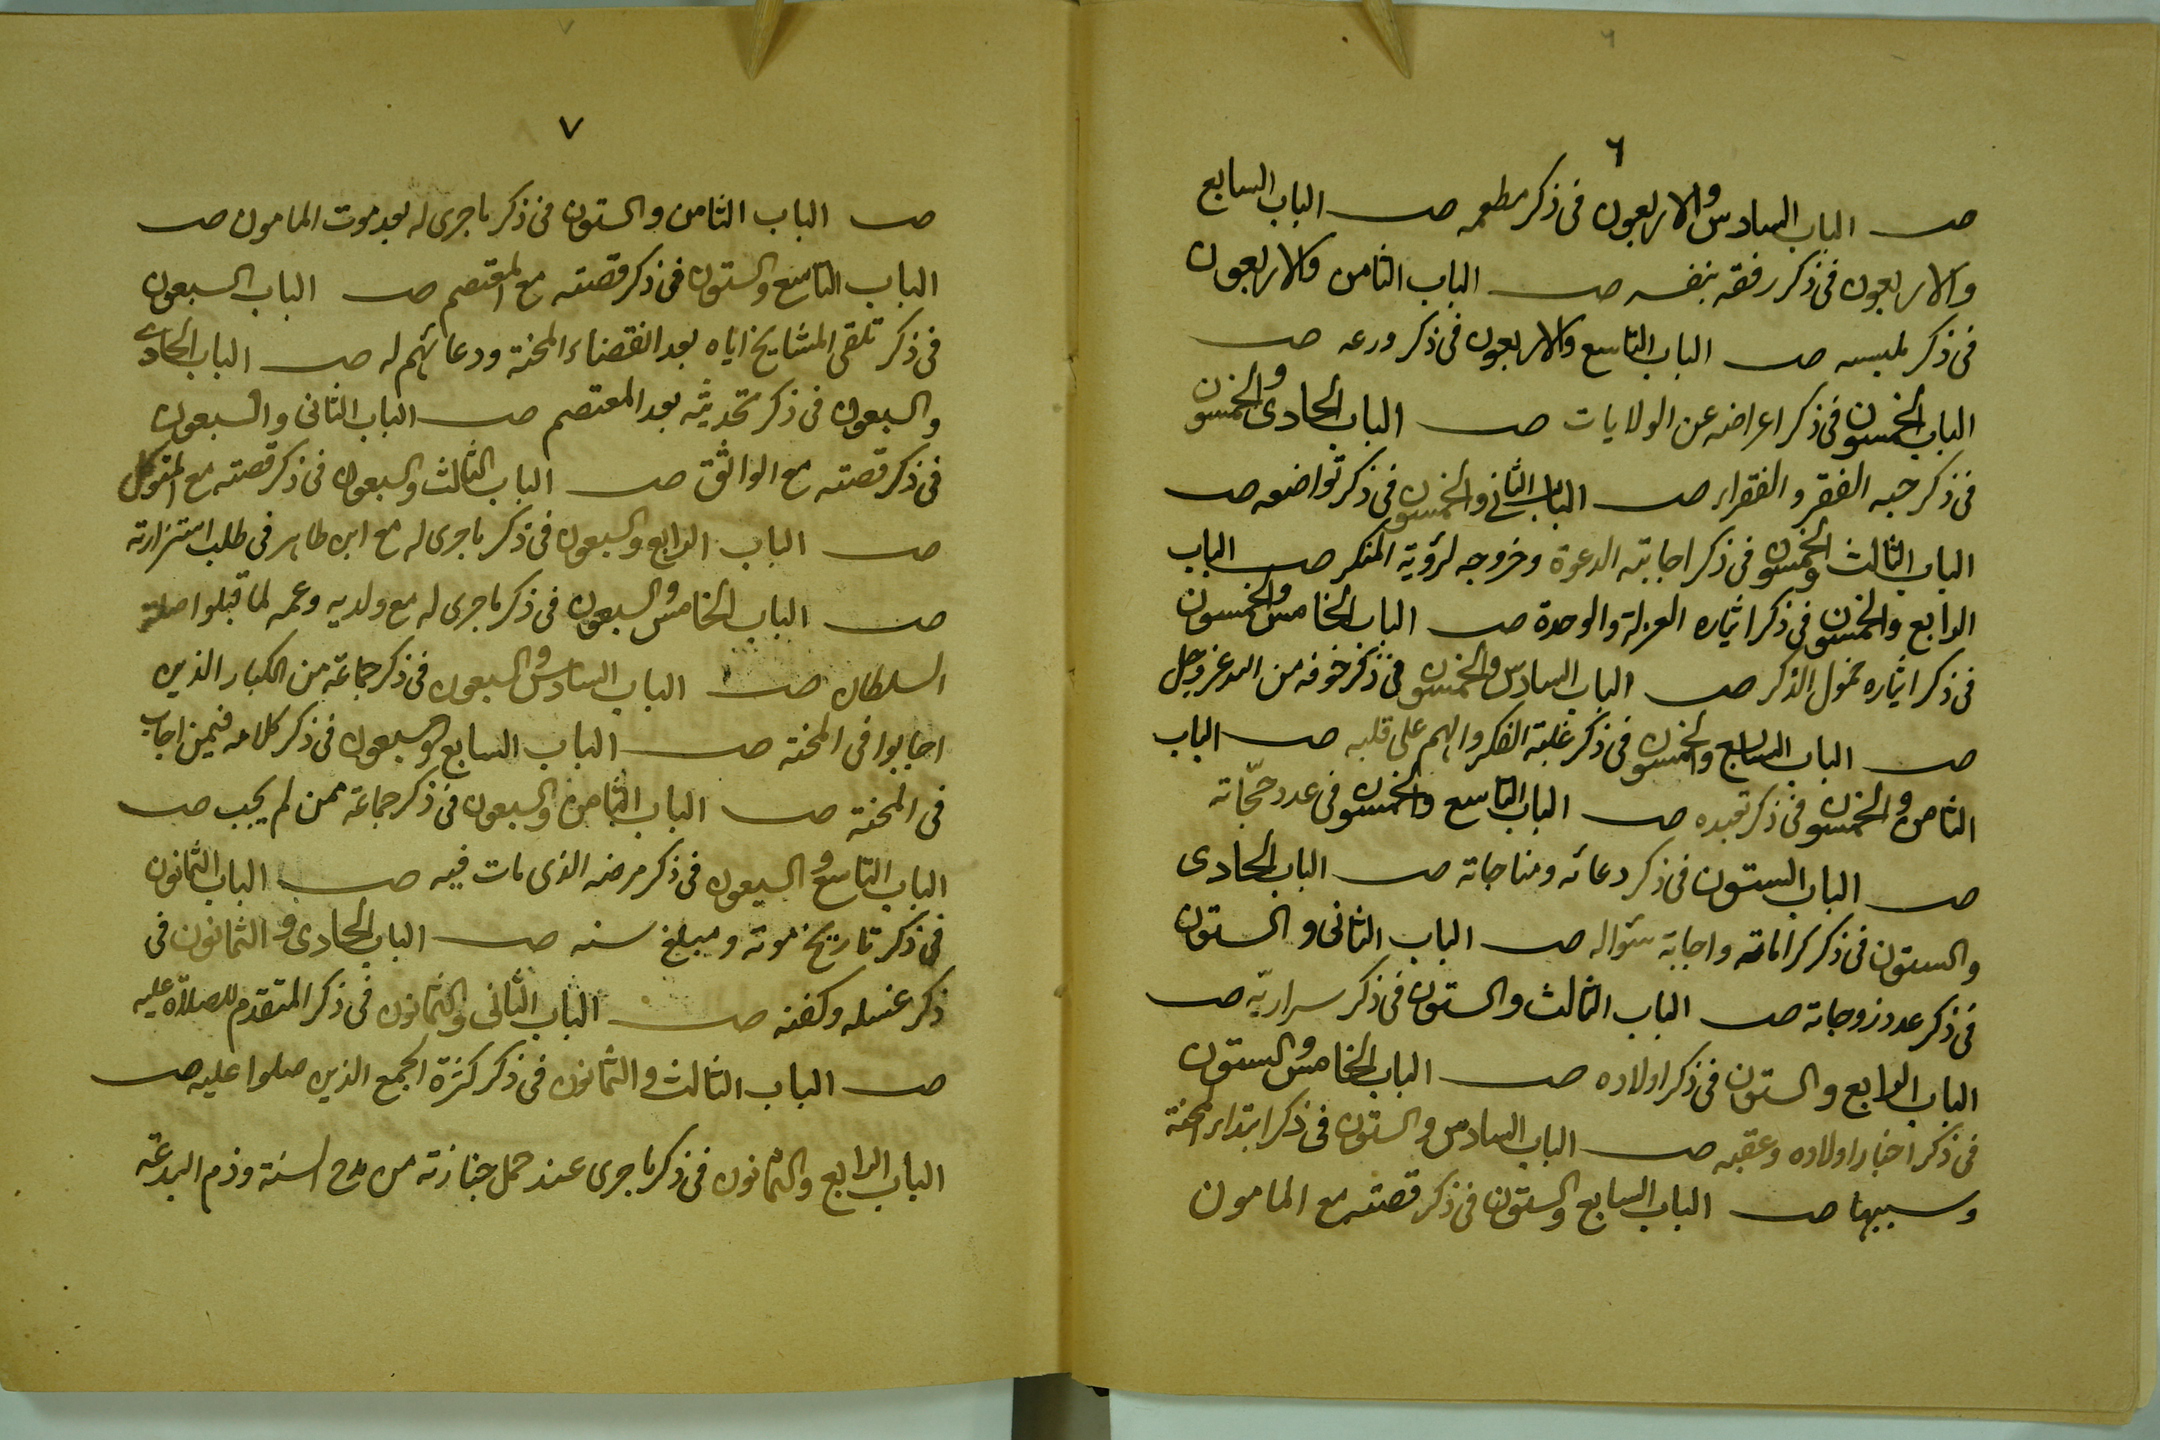 ٦
صـــ الباب السادس والاربعون فى ذكر مطعمه صـــ الباب السابع
والاربعون فى ذكر رفقه بنفسه صـــ الباب الثامن والاربعون
فى ذكر ملبسه صـــ الباب التاسع والاربعون فى ذكر ورعه صـــ
الباب الخمسون فى ذكر اعراضه عن الولايات صـــ الباب الحادى والخمسون
فى ذكر حبه الفقر والفقراء صـــ الباب الثانى والخمسون فى ذكر تواضعه صـــ
الباب الثالث والخمسون فى ذكر اجابته الدعوة وخروجه لرؤية المنكر صـــ الباب
الرابع والخمسون فى ذكر ايثاره العزلة والوحدة صـــ الباب الخامس والخمسون
فى ذكر ايثاره خمول الذكر صـــ الباب السادس والخمسون فى ذكر خوفه من الله عز وجل
صـــ الباب السابع والخمسون فى ذكر غلبة الفكر والهم على قلبه صـــ الباب
الثامن والخمسون فى ذكر تعبده صـــ الباب التاسع والخمسون فى عدد حجّاته
صـــ الباب الستون فى ذكر دعائه ومناجاته صـــ الباب الحادى
والستون فى ذكر كراماته واجابة سئواله صـــ الباب الثانى والستون
فى ذكر عدد زوجاته صـــ الباب الثالث والستون فى ذكر سراريّه صـــ
الباب الرابع والستون فى ذكر اولاده صـــ الباب الخامس والستون
فى ذكر اخبار اولاده وعقبه صـــ الباب السادس والستون فى ذكر ابتداء المحنة
وسببها صـــ الباب السابع والستون فى ذكر قصته مع المامون
٧
صـــ الباب الثامن والستون فى ذكر ما جرى له بعد موت المامون صـــ
الباب التاسع والستون فى ذكر قصته مع المعتصم صـــ الباب السبعون
فى ذكر تلقى المشايخ اياه بعد انقضاء المحنة ودعائهم له صـــ الباب الحادى
والسبعون فى ذكر تحديثه بعد المعتصم صـــ الباب الثانى والسبعون
فى ذكر قصته مع الواثق صـــ الباب الثالث والسبعون فى ذكر قصته مع المتوكل
صـــ الباب الرابع والسبعون فى ذكر ما جرى له مع ابن طاهر فى طلب استزارته
صـــ الباب الخامس والسبعون فى ذكر ما جرى له مع ولديه وعمه لما قبلوا صلة
السلطان صـــ الباب السادس والسبعون فى ذكر جماعة من الكبار الذين
اجابوا فى المحنة صـــ الباب السابع والسبعون فى ذكر كلامه فيمن اجاب
فى المحنة صـــ الباب الثامن والسبعون فى ذكر جماعة ممن لم يجب صـــ
الباب التاسع والسبعون فى ذكر مرضه الذى مات فيه صـــ الباب الثمانون
فى ذكر تاريخ موته ومبلغ سنه صـــ الباب الحادى والثمانون فى
ذكر غسله وكفنه صـــ الباب الثانى والثمانون فى ذكر المتقدم للصلاة عليه
صـــ الباب الثالث والثمانون فى ذكر كثرة الجمع الذين صلوا عليه صـــ
الباب الرابع والثمانون فى ذكر ما جرى عند حمل جنازته من مدح السنة وذم البدعة